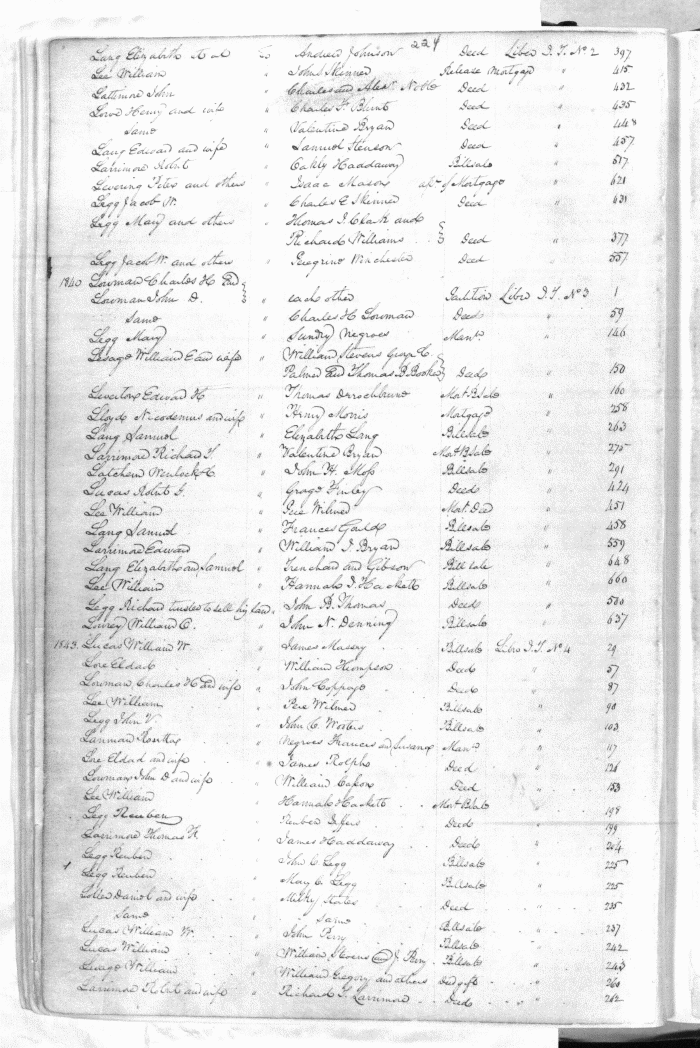 224
Lang Elizabeth et al to Andrew Johnson Deed Liber J.T. No 2 397
Lee William " John Skinner Release Mortgage " 415
Lattimore John " Charles and Alexr Deed " 432
Lowe Henry and wife " Charles F. Blunt Deed " 435
Same " Valentine Bryan Deed " 448
Lang Edward and wife " Samuel Henson Deed " 457
Larrimore Robt " Oakly Haddaway Billsale " 517
Levering Peter and others " Isaac Mason of Mortgage " 621
Legg Jacob W. " Charles E Skinner Deed " 631
Legg Mary and others " Thomas I. Clark and
Richard Williams Deed " 377
Legg Jacob W. and others " Peregrine Winchester Deed " 557
1840 Lowman Charles H. and
Lowman John D. " each other Partition Liber J.T. No 3 1
Same " Charles H Lowman Deed " 59
Legg Mary " Sundry Negroes Mann. " 146
Lesage William E and wife " William Stevens George C.
Palmer and Thomas B. Deed " 150
Leverton Edward H " Thomas Mort. B.Sale " 160
Lloyd Nicodemus and wife " Henry Morris Mortgage " 258
Lang Samuel " Elizabeth Lang Billsale " 263
Larrimore Richard T. " Valentine Bryan Mort B.Sale " 275
Latchem Wenlock C. " John H. Moss Billsale " 291
Lucas Robert T. " George Finley Deed " 424
Lee William " Pere Wilmer Mort. Deed " 451
Lang Samuel " Frances Gould Billsale " 458
Larrimore Edward " William I Bryan Billsale " 559
Lang Elizabeth and Samuel " Trenchard and Gibson Bill sale " 648
Lee William " Hannah I. Hackett Billsale " 660
Legg Richard trustee to sell his land " John B. Thomas Deed " 500
Lowey William C. " John N. Denning Billsale " 637
1843 Lucas William W. " James Massey Billsale Libro J.T. No 4 29
Lore Eldad " William Thompson Deed " 57
Lowman Charles H and wife " John Coppage Deed " 87
Lee William " Pere Wilmer Billsale " 90
Legg John V. " John C. Wosters Billsale " 103
Lanman " Negroes Frances and Susan Mann. " 117
Lore Eldad and wife " James Rolph Deed " 121
Lowman John D and wife " William Deed " 153
Lee William " Hannah Hackett Mort B.Sale " 198
Legg Reuben " Reuben Deed " 199
Larrimore Thomas H. " James Haddaway Deed " 204
Legg Reuben " John C Legg Billsale " 225
Legg Reuben " Mary C. Legg Billsale " 225
Daniel and wife " Deed " 235
Same " Same
Lucas William W. " John Perry Billsale " 237
Lucas William " William Stevens and J. Perry Billsale " 242
William " William Gregory and others Billsale " 243
Larrimore Robert and wife " Richard T. Larrimore Deed gift " 260
Deed " 262